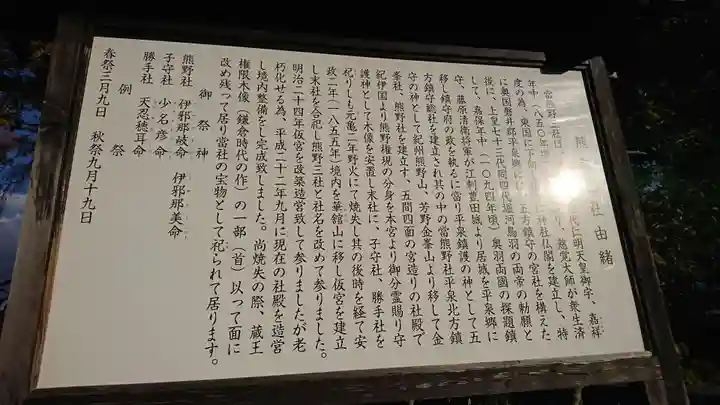 熊 社由緒
當熊野三社 代仁明天皇御宇、嘉祥
年中(八五〇年 り、慈覚大師が衆生済
度の為、東国に下 に神社仏閣を建立し、特
に奥国磐井郡平泉郷に 五方鎮守の宮社を構えた
後に、上皇七十三代同四代堀河鳥羽の両帝の勅願と
して、嘉保年中(一〇九四年頃)奥羽両國の探題鎮
守、藤原清衛将軍が江刺豊田城より居城を平泉郷に
移し鎮守府の政を執るに當り平泉鎮護の神として五
方鎮守総社を建立され其の中の當熊野社平泉北方鎮
守の神として紀州熊野山、芳野金峯山より移して金
峯社、熊野社を建立す、五間四面の宮造りの社殿で
紀伊国より熊野権現の分身を本宮より御分霊賜り守
護神として木像を安置し末社に、子守社、勝手社を
祀りしも元亀二年野火にて焼失し其の後時を経て安
政二年(一八五五年)境内を華館山に移し仮宮を建立
し末社を合祀し熊野三社と社名を改めて参りました。
明治二十四年仮宮を改築造営致して参りましたが老
朽化せる為、平成二十二年九月に現在の社殿を造営
し境内整備をし完成致しました。尚焼失の際、蔵王
権限木像(鎌倉時代の作)の一部(首)以って面に
改め残って居り當社の宝物として祀られて居ります。
御祭神
熊野社 伊邪那岐命 伊邪那美命
子守社 少名彦命
勝手社 天忍穂耳命
例祭
春祭三月九日 秋祭九月十九日